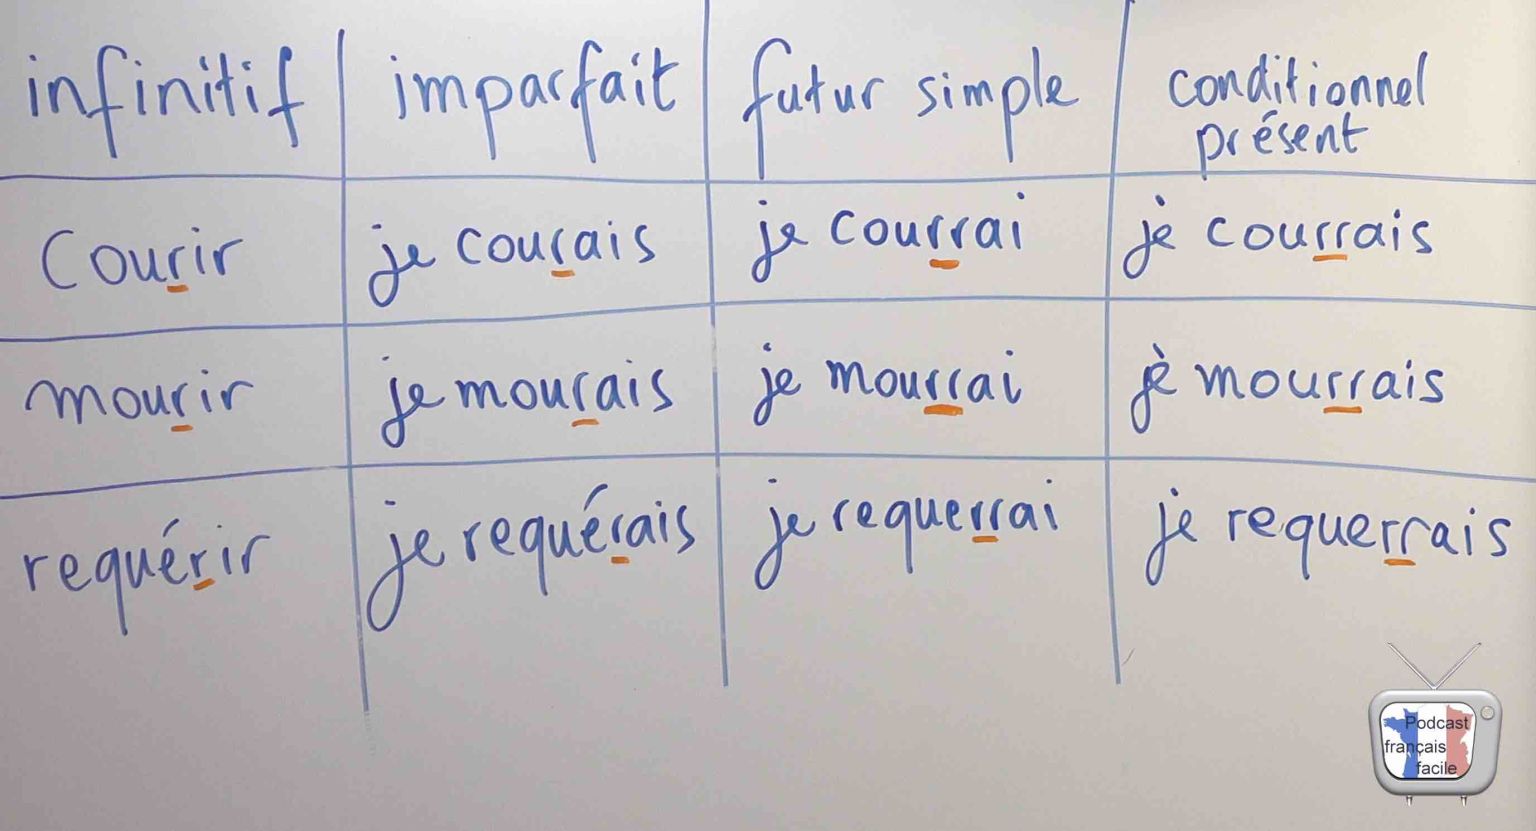 infinitif imparfait futur simple conditionnel
présent
Courir je courais je courrai je courrais
mourir je mourais je mourrai je mourrais
requérir je requérais je requerrai je requerrais
Podcast
français
facile